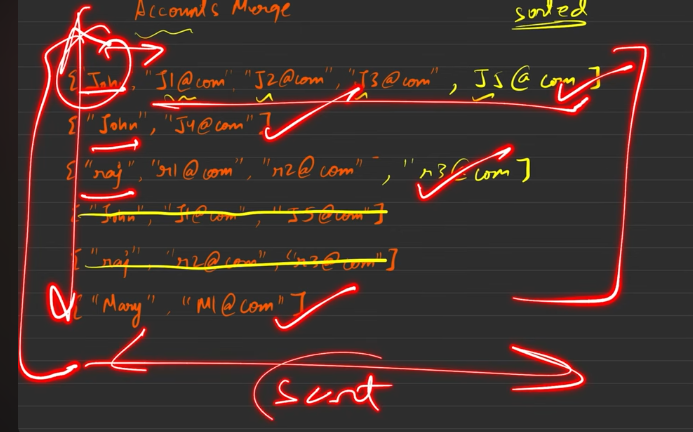 Accounts Merge sorted
{ "John", "J1@com", "J2@com", "J3@com", J5@com ]
{ "John", "J4@com" ]
{ "raj", "r1@com", "r2@com", "r3@com ]
{ "John", "J1@com", "J5@com" ]
{ "raj", "r2@com", "r3@com" ]
{ "Mary", "M1@com" ]
Sort